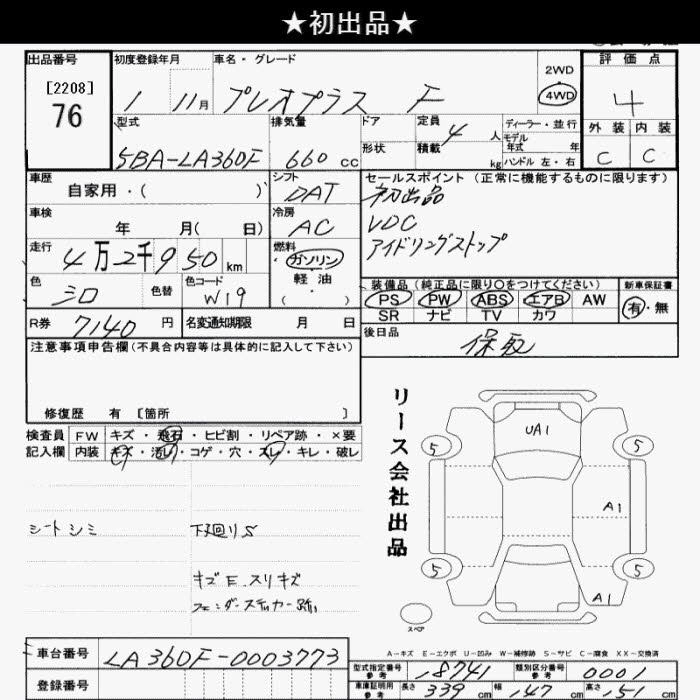 ★初出品★
出品番号 初度登録年月 車名・グレード 評価点
[2208] 76 1 11月 プレオプラス F 2WD 4WD 4
型式 排気量 ドア 定員 4人 ディーラー・並行 外装 内装
5BA-LA360F 660cc 形状 積載 kg モデル年式 年 ハンドル 左・右 C C
車歴 シフト セールスポイント(正常に機能するものに限ります)
自家用・( ) DAT 初出品
車検 冷房 VDC
年 月( 日) AC アイドリングストップ
走行 4万2千950km 燃料 ガソリン 軽油 ( )
色 シロ 色替 色コード W19
装備品(純正品に限り○をつけてください) 新車保証書
PS PW ABS エアB AW 有・無
SR ナビ TV カワ
R券 7140円 名変通知期限 月 日
後日品 保取
注意事項申告欄(不具合内容等は具体的に記入して下さい)
修復歴 有 [箇所 ]
検査員 FW キズ・飛石・ヒビ割・リペア跡・×要
記入欄 内装 キズ・汚レ・コゲ・穴・スレ・キレ・破レ
シートシミ 下廻りS
キズE スリキズ
フェンダーステッカー跡
リース会社出品
UA1
5 5
A1
5 5
A1
スペア
A-キズ E-エクボ U-凹み W-補修跡 S-サビ C-腐食 XX-交換済
車台番号 LA360F-0003773
登録番号
型式指定番号 参考 18741 類別区分番号 参考 0001
車庫証明用 参考 長さ 339cm 幅 147cm 高さ 151cm